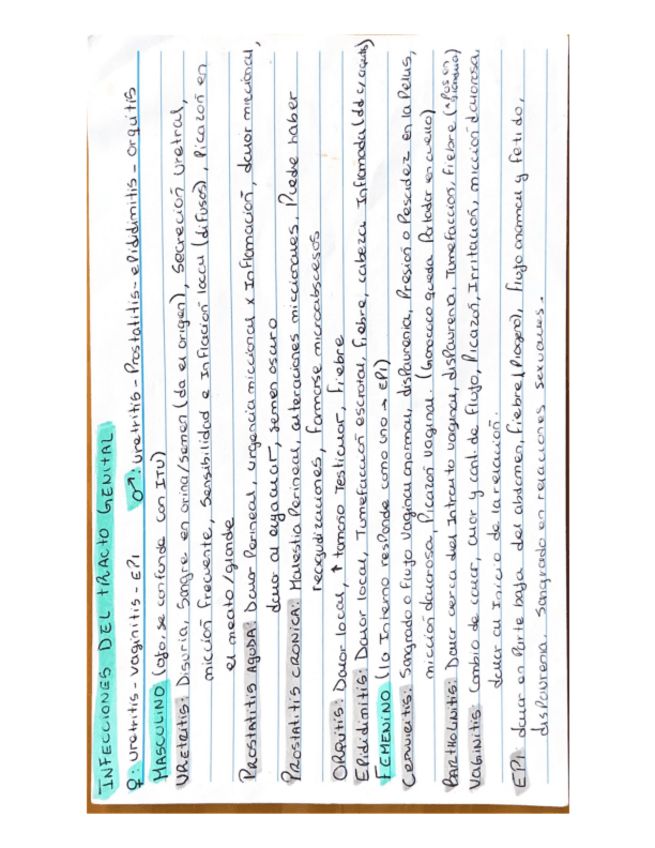 INFECCIONES DEL TRACTO GENITAL
♀: uretritis - vaginitis - EPI ♂: uretritis - Prostatitis - epididimitis - orquitis
MASCULINO (ojo, se confunde con ITU)
URETRITIS: Disuria, Sangre en orina/semen (da el origen), Secreción uretral,
micción frecuente, Sensibilidad e Inflación local (difusos), Picazón en
el meato/glande
PROSTATITIS AGUDA: Dolor Perineal, urgencia miccional x Inflamación, dolor miccional,
dolor al eyacular, semen oscuro
PROSTATITIS CRONICA: Molestia Perineal, alteraciones miccionales. Puede haber
reagudizaciones, formarse microabscesos
ORQUITIS: Dolor local, ↑ tamaño Testicular, fiebre
EPIdidimitis: Dolor local, Tumefacción escrotal, fiebre, cabeza Inflamada (dd c/orquitis)
FEMENINO (lo Interno responde como uno → EPI)
CERVICITIS: Sangrado o flujo vaginal anormal, dispaurenia, Presión o Pescidez en la Pelvis,
micción dolorosa, Picazón vaginal. (Gonococo queda Portador en cuello)
BARTHOLINITIS: Dolor cerca del Introito vaginal, dispaurenia, Tumefacción, fiebre
VAGINITIS: Cambio de color, olor y cant. de flujo, Picazón, Irritación, micción dolorosa,
dolor al Inicio de la relación.
EPI: dolor en Parte baja del abdomen, fiebre (Piógeno), flujo anormal y fetido,
dispaurenia, Sangrado en relaciones sexuales.